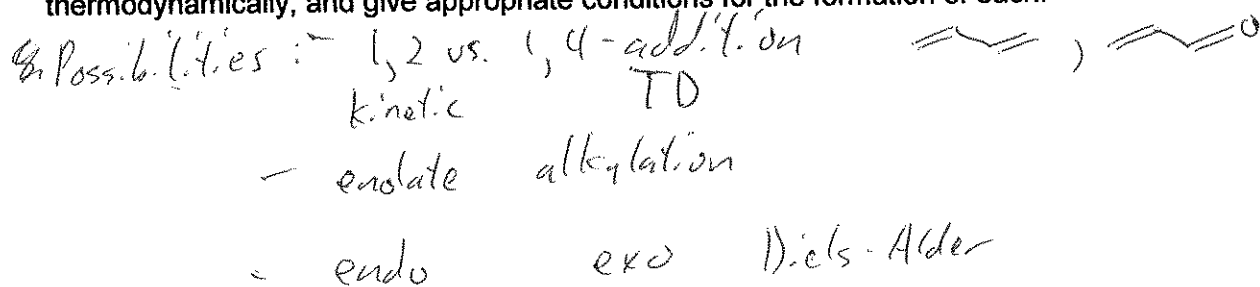 thermodynamically, and give appropriate conditions for the formation of each.
Possibilities : - 1,2 vs. 1,4-addition , O
kinetic TD
- enolate alkylation
- endo exo Diels-Alder